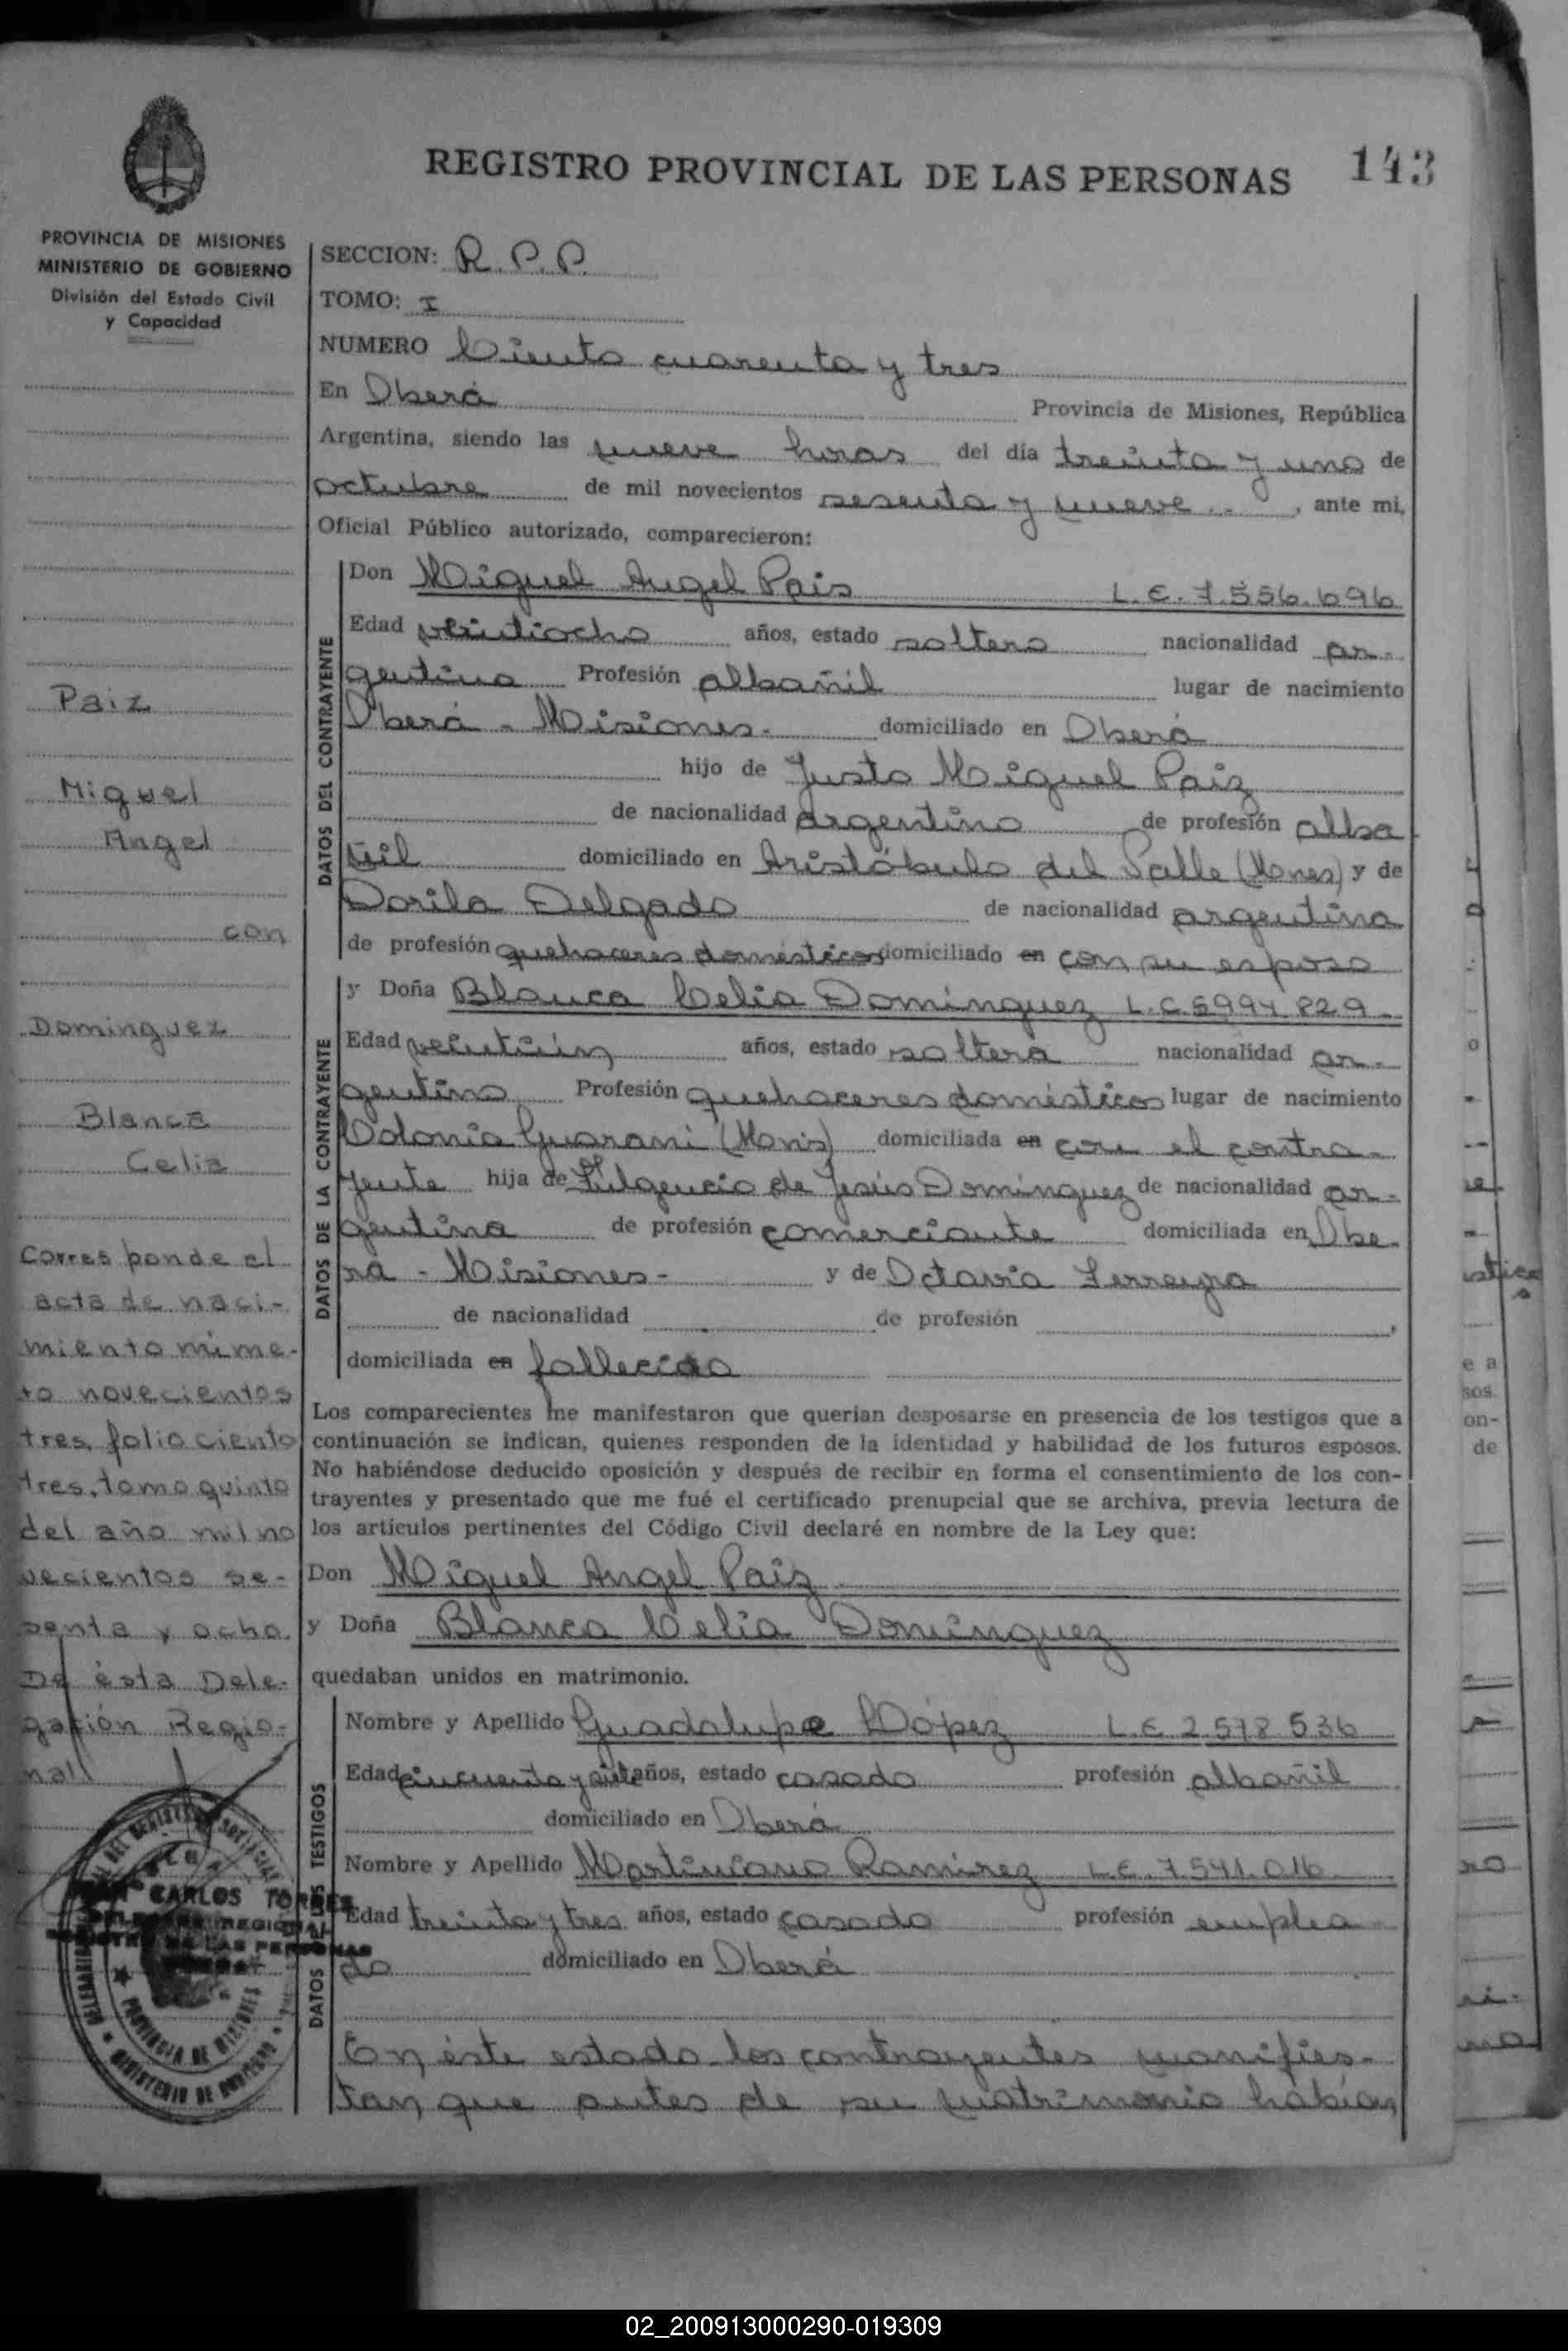 REGISTRO PROVINCIAL DE LAS PERSONAS 143
PROVINCIA DE MISIONES
MINISTERIO DE GOBIERNO
División del Estado Civil
y Capacidad
SECCION: R. P. P.
TOMO: I
NUMERO Ciento cuarenta y tres
En Oberá Provincia de Misiones, República
Argentina, siendo las nueve horas del día treinta y uno de
octubre de mil novecientos sesenta y nueve , ante mi,
Oficial Público autorizado, comparecieron:
DATOS DEL CONTRAYENTE
Don Miguel Angel Pais L.E. 7.556.696
Edad veintiocho años, estado soltero nacionalidad ar-
gentina Profesión albañil lugar de nacimiento
Oberá - Misiones- domiciliado en Oberá
hijo de Justo Miguel Paiz
de nacionalidad argentino de profesión alba
ñil domiciliado en Aristóbulo del Valle (Mones) y de
Dorila Delgado de nacionalidad argentina
de profesión quehaceres domésticos domiciliado en con su esposo
DATOS DE LA CONTRAYENTE
y Doña Blanca Celia Domínguez L.C. 5994 829-
Edad veintiún años, estado soltera nacionalidad ar-
gentina Profesión quehaceres domésticos lugar de nacimiento
Colonia Guaraní (Mones) domiciliada en con el contra-
yente hija de Fulgencio de Jesús Domínguez de nacionalidad ar-
gentina de profesión comerciante domiciliada en Obe-
rá - Misiones- y de Octavia Ferreyra
de nacionalidad de profesión ,
domiciliada en fallecida
Los comparecientes me manifestaron que querian desposarse en presencia de los testigos que a
continuación se indican, quienes responden de la identidad y habilidad de los futuros esposos.
No habiéndose deducido oposición y después de recibir en forma el consentimiento de los con-
trayentes y presentado que me fué el certificado prenupcial que se archiva, previa lectura de
los artículos pertinentes del Código Civil declaré en nombre de la Ley que:
Don Miguel Angel Paiz
y Doña Blanca Celia Domínguez
quedaban unidos en matrimonio.
DATOS DE LOS TESTIGOS
Nombre y Apellido Guadalupe López L.E. 2.578.536
Edad cincuenta y siete años, estado casado profesión albañil
domiciliado en Oberá
Nombre y Apellido Martiniano Ramírez L.E. 7.541.016
Edad treinta y tres años, estado casado profesión emplea-
do domiciliado en Oberá
En éste estado los contrayentes manifies-
tan que antes de su matrimonio habían
Paiz
Miguel
Angel
con
Dominguez
Blanca
Celia
Corresponde el
acta de naci-
miento núme-
ro novecientos
tres, folio ciento
tres, tomo quinto
del año mil no
vecientos se-
senta y ocho.
De ésta Dele-
gación Regio-
nal
CARLOS TORRES
REGIONAL
DE LAS PERSONAS
PROVINCIA DE MISIONES
MINISTERIO DE GOBIERNO
02_200913000290-019309